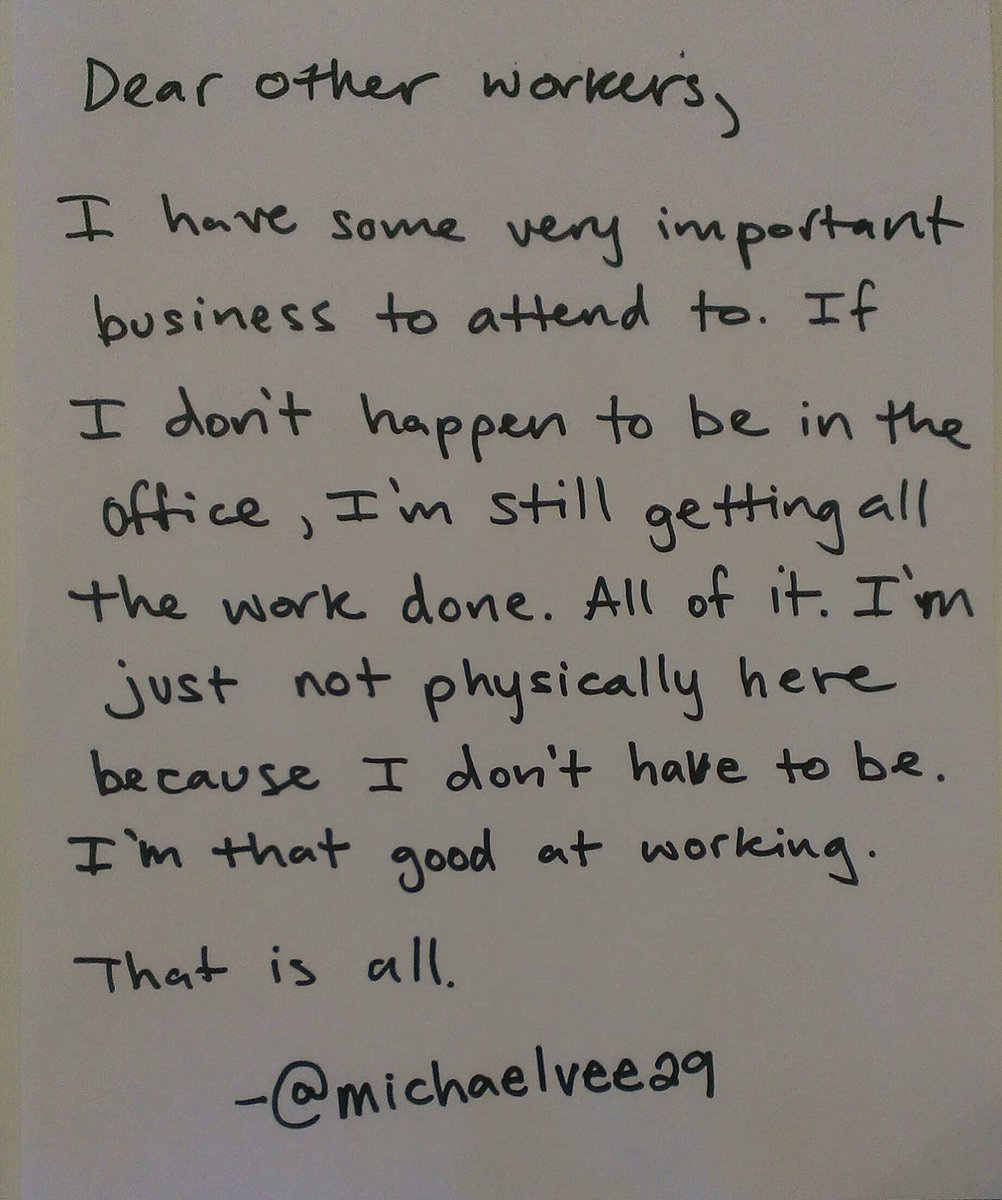 Dear other workers,
I have some very important
business to attend to. If
I don't happen to be in the
office, I'm still getting all
the work done. All of it. I'm
just not physically here
because I don't have to be.
I'm that good at working.
That is all.
-@michaelvee29